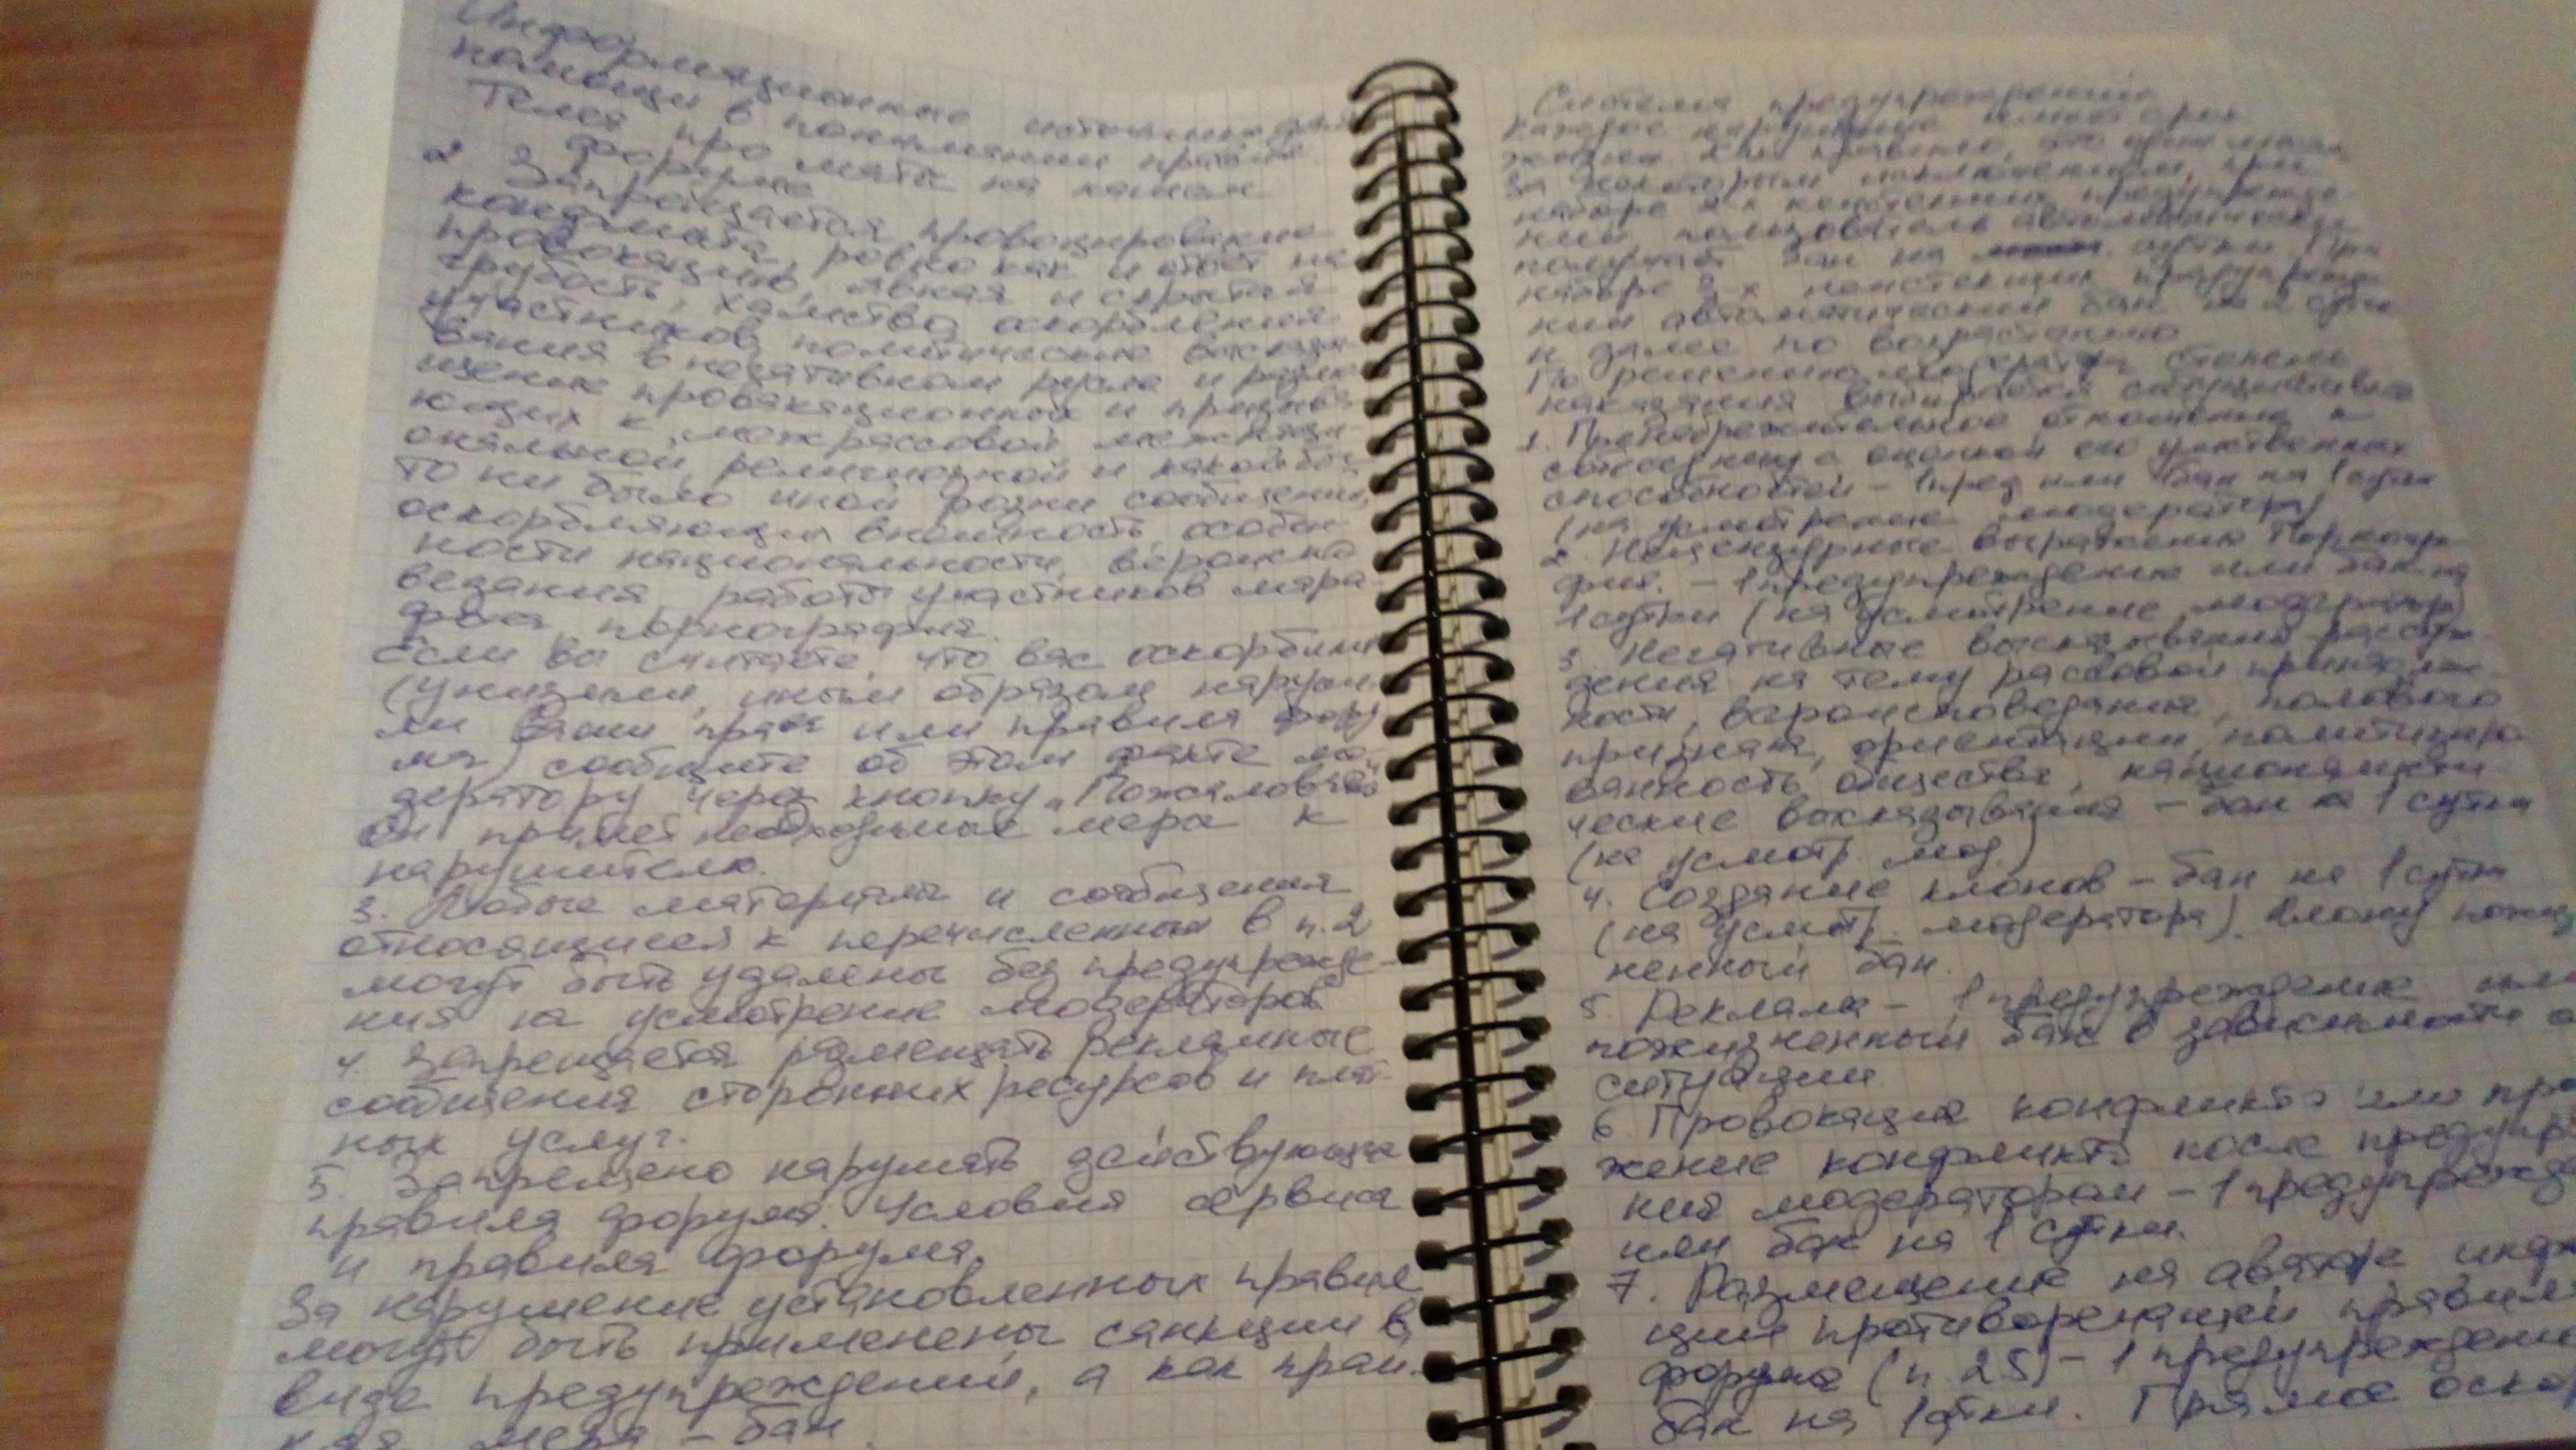 Информационные источники для
помощи в понимании правил
Тема про маты на нашем
форуме
2 Запрещается провоцирование
конфликта, ровно как и ответ на
провокацию, явная и скрытая
грубость, хамство, оскорбления
участников, политические выска
вания в негативном русле и разме
щение провакационных и призыва
ющих к межрассовой, межнаци
ональной, религиозной и какой бы
то ни было иной розни сообщений,
оскорбляющих внешность, особен
ности национальности, вероиспо
ведания, работы участников мара
фона порнография.
Если вы считаете, что вас оскорбили
(унизили, иным образом наруши
ли Ваши права или правила фору
ма) сообщите об этом факте мо
дератору через кнопку "Пожаловаться
Он примет необходимые меры к
нарушителю.
3. Любые материалы и сообщения
относящиеся к перечисленным в п.2
могут быть удалены без предупрежде-
ния на усмотрение модераторов
4 Запрещается размещать рекламные
сообщения сторонних ресурсов и плат
ных услуг.
5. Запрещено нарушать действующие
правила форума. Условия сервиса
и правила форума.
За нарушение установленных правил
могут быть применены санкции в
виде предупреждений, а как край.
няя мера - бан.
Система предупреждений
Каждое нарушение имеет срок
За некоторым исключением, при
наборе 2-х предупрежде
ний пользователь автоматически
получает бан на сутки При
наборе 3-х предупрежде
ний автоматический бан на 2 суток
и далее по возрастанию
По решению модератора степень
наказания
1. Пренебрежительное отношение к
собеседнику с оценкой его умственных
способностей - 1 пред или бан на 1 сутки
(на усмотрение модератора)
2. Нецензурные выражения Порногра
фия. - 1 предупреждение или бан на
1 сутки (на усмотрение модератора)
3. Негативные высказывания рассуж
дения на тему рассовой принадлеж
ности, вероисповедания, полового
признака, ориентации, политизиро
ванность общества, националисти
ческие воскладывания - бан на 1 сутки
(на усмотр. мод.)
4. Создание клонов - бан на 1 сутки
(на усмотр. модератора). Клону пожиз
ненный бан.
5. Реклама - 1 предупреждение или
пожизненный бан в зависимости о
ситуации
6 Провокация конфликта или про
жение конфликта после предупр
ния модератором - 1 предупрежд
или бан на 1 сутки.
7. Размещение на аватаре инфо
ции противоречащей правил
форума (п. 25) - 1 предупреждени
бан на 1 сутки. Прямое оско